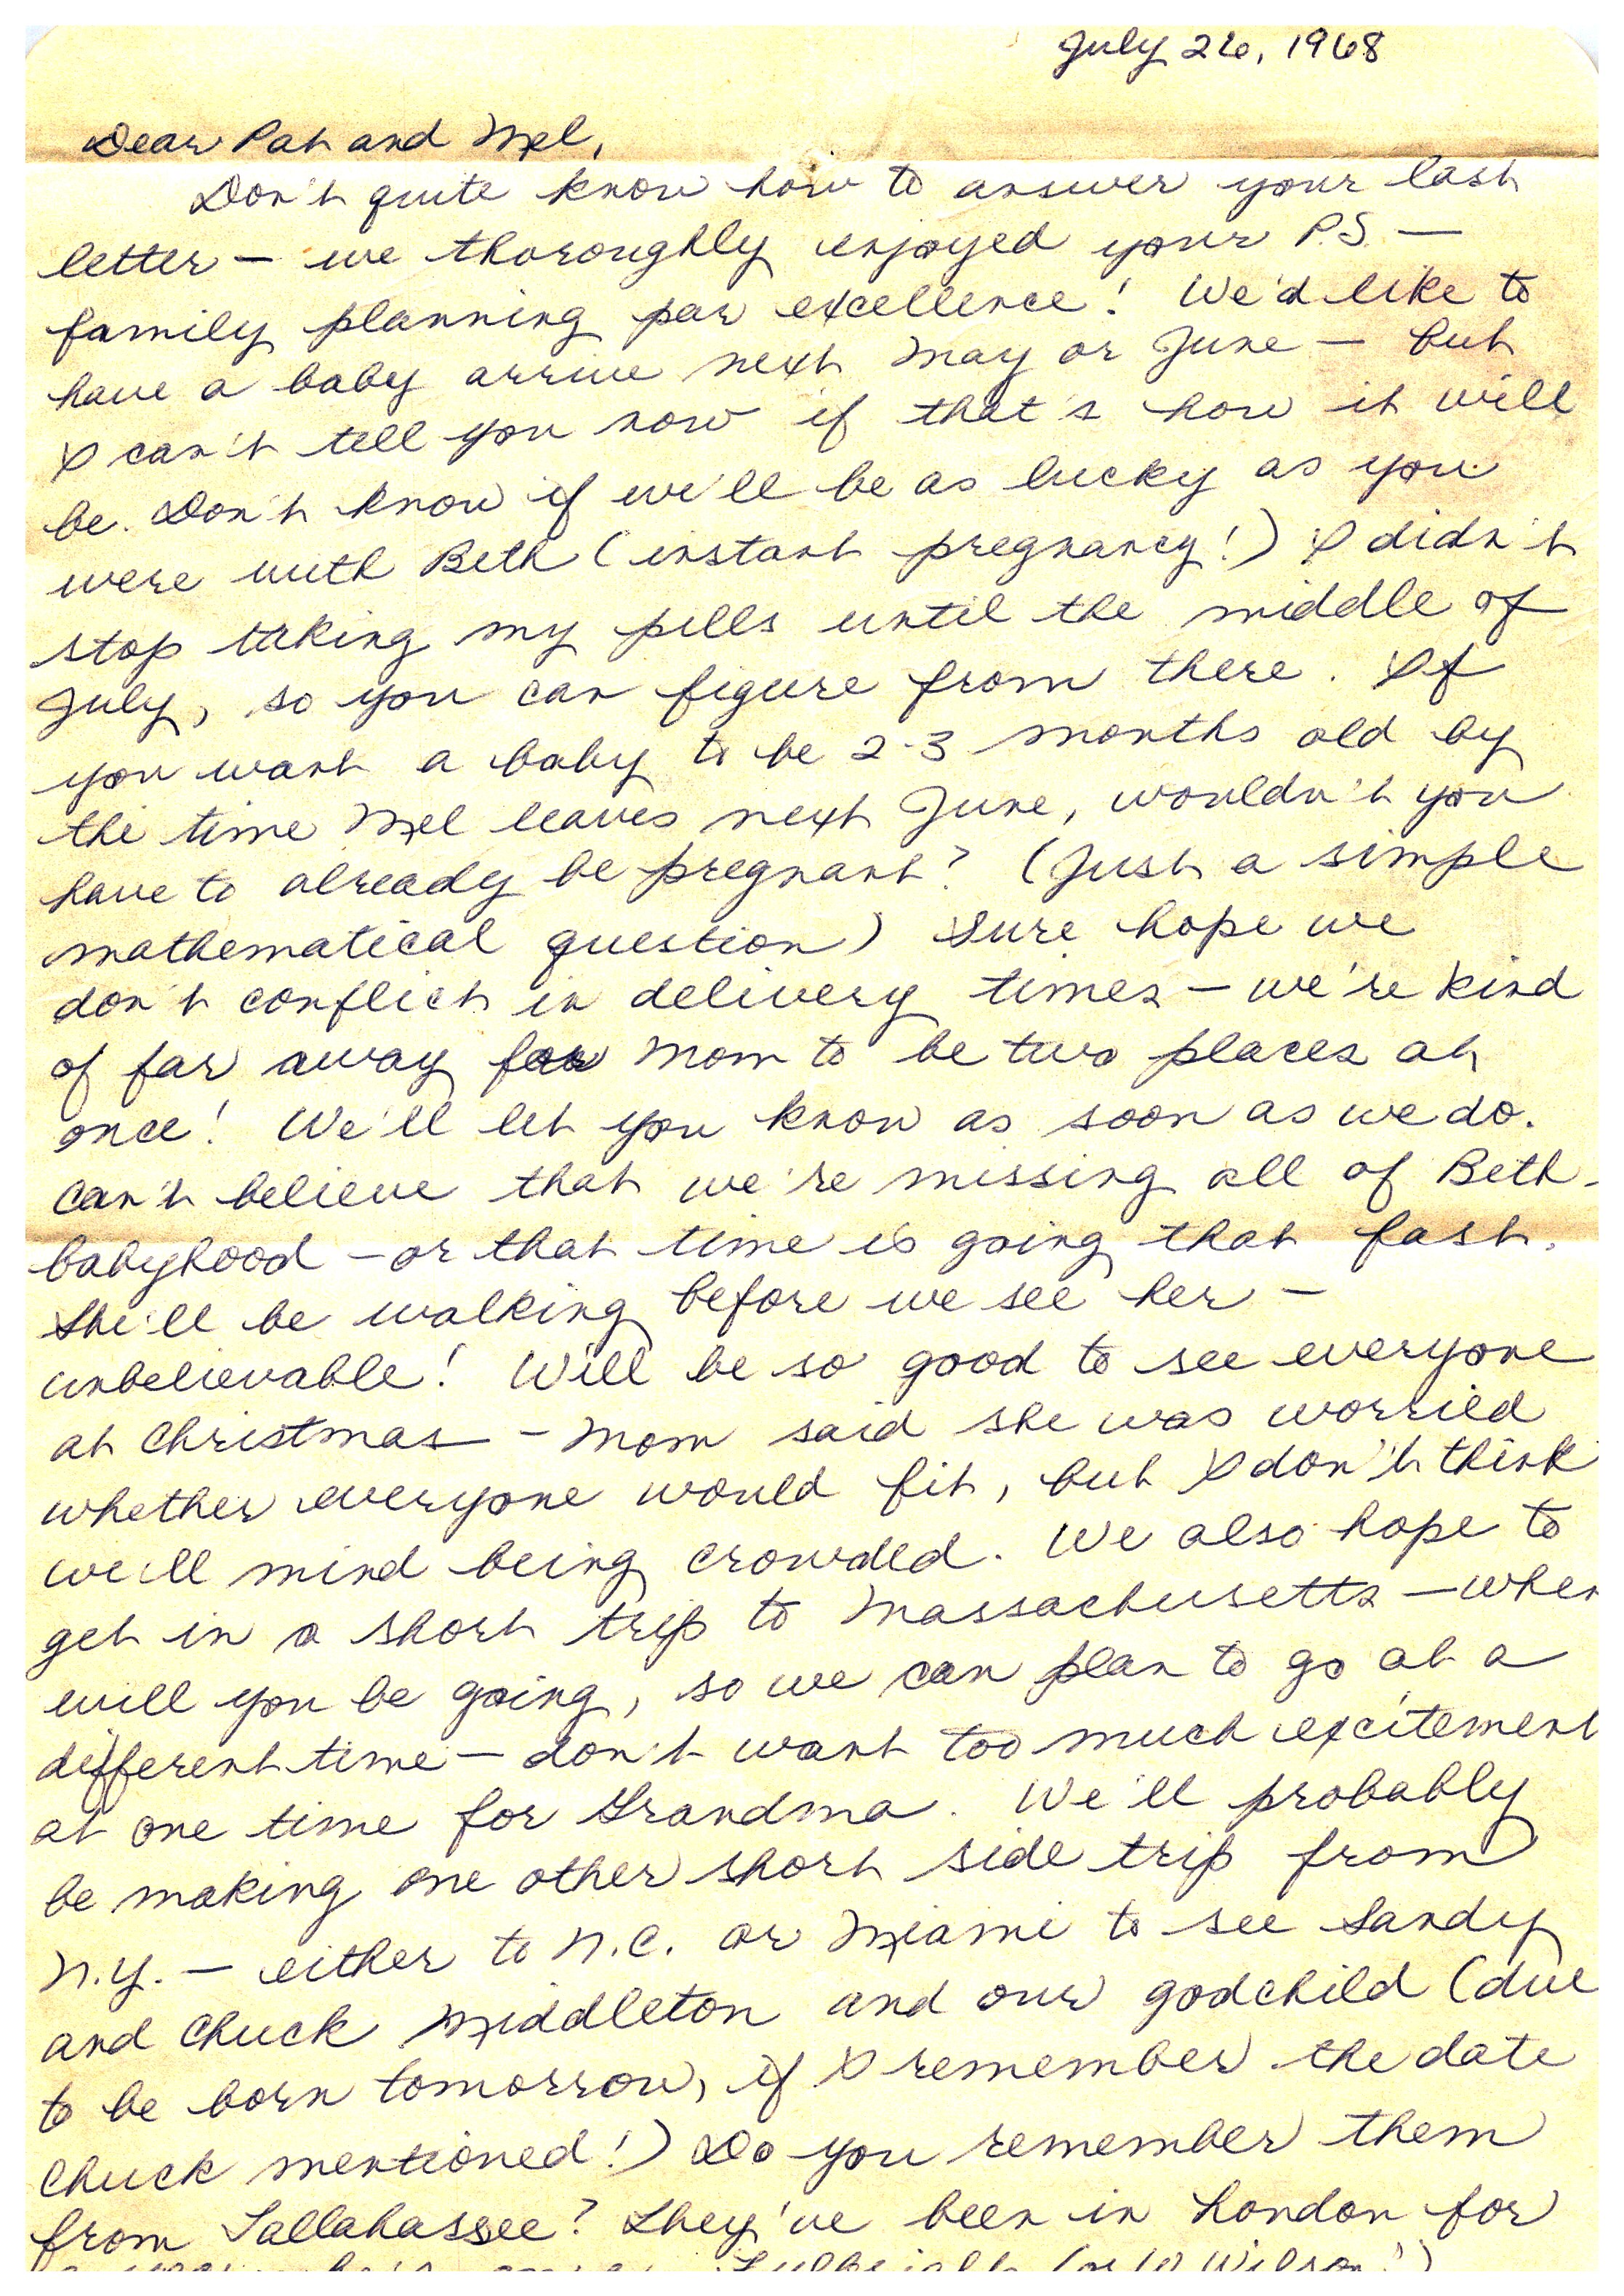 July 26, 1968
Dear Pat and Mel,
Don't quite know how to answer your last
letter – we thoroughly enjoyed your P.S. –
family planning par excellence! We'd like to
have a baby arrive next May or June – but
I can't tell you now if that's how it will
be. Don't know if we'll be as lucky as you
were with Beth (instant pregnancy!) I didn't
stop taking my pills until the middle of
July, so you can figure from there. If
you want a baby to be 2-3 months old by
the time Mel leaves next June, wouldn't you
have to already be pregnant? (Just a simple
mathematical question) Sure hope we
don't conflict in delivery times – we're kind
of far away for Mom to be two places at
once! We'll let you know as soon as we do.
Can't believe that we're missing all of Beth
babyhood – or that time is going that fast.
She'll be walking before we see her –
unbelievable! Will be so good to see everyone
at Christmas – Mom said she was worried
whether everyone would fit, but I don't think
we'll mind being crowded. We also hope to
get in a short trip to Massachusetts – when
will you be going, so we can plan to go at a
different time – don't want too much excitement
at one time for Grandma. We'll probably
be making one other short side trip from
N.Y. – either to N.C. or Miami to see Sandy
and Chuck Middleton and our godchild (due
to be born tomorrow, if I remember the date
Chuck mentioned!) Do you remember them
from Tallahassee? They've been in London for
Fulbright (or W Wilson?)